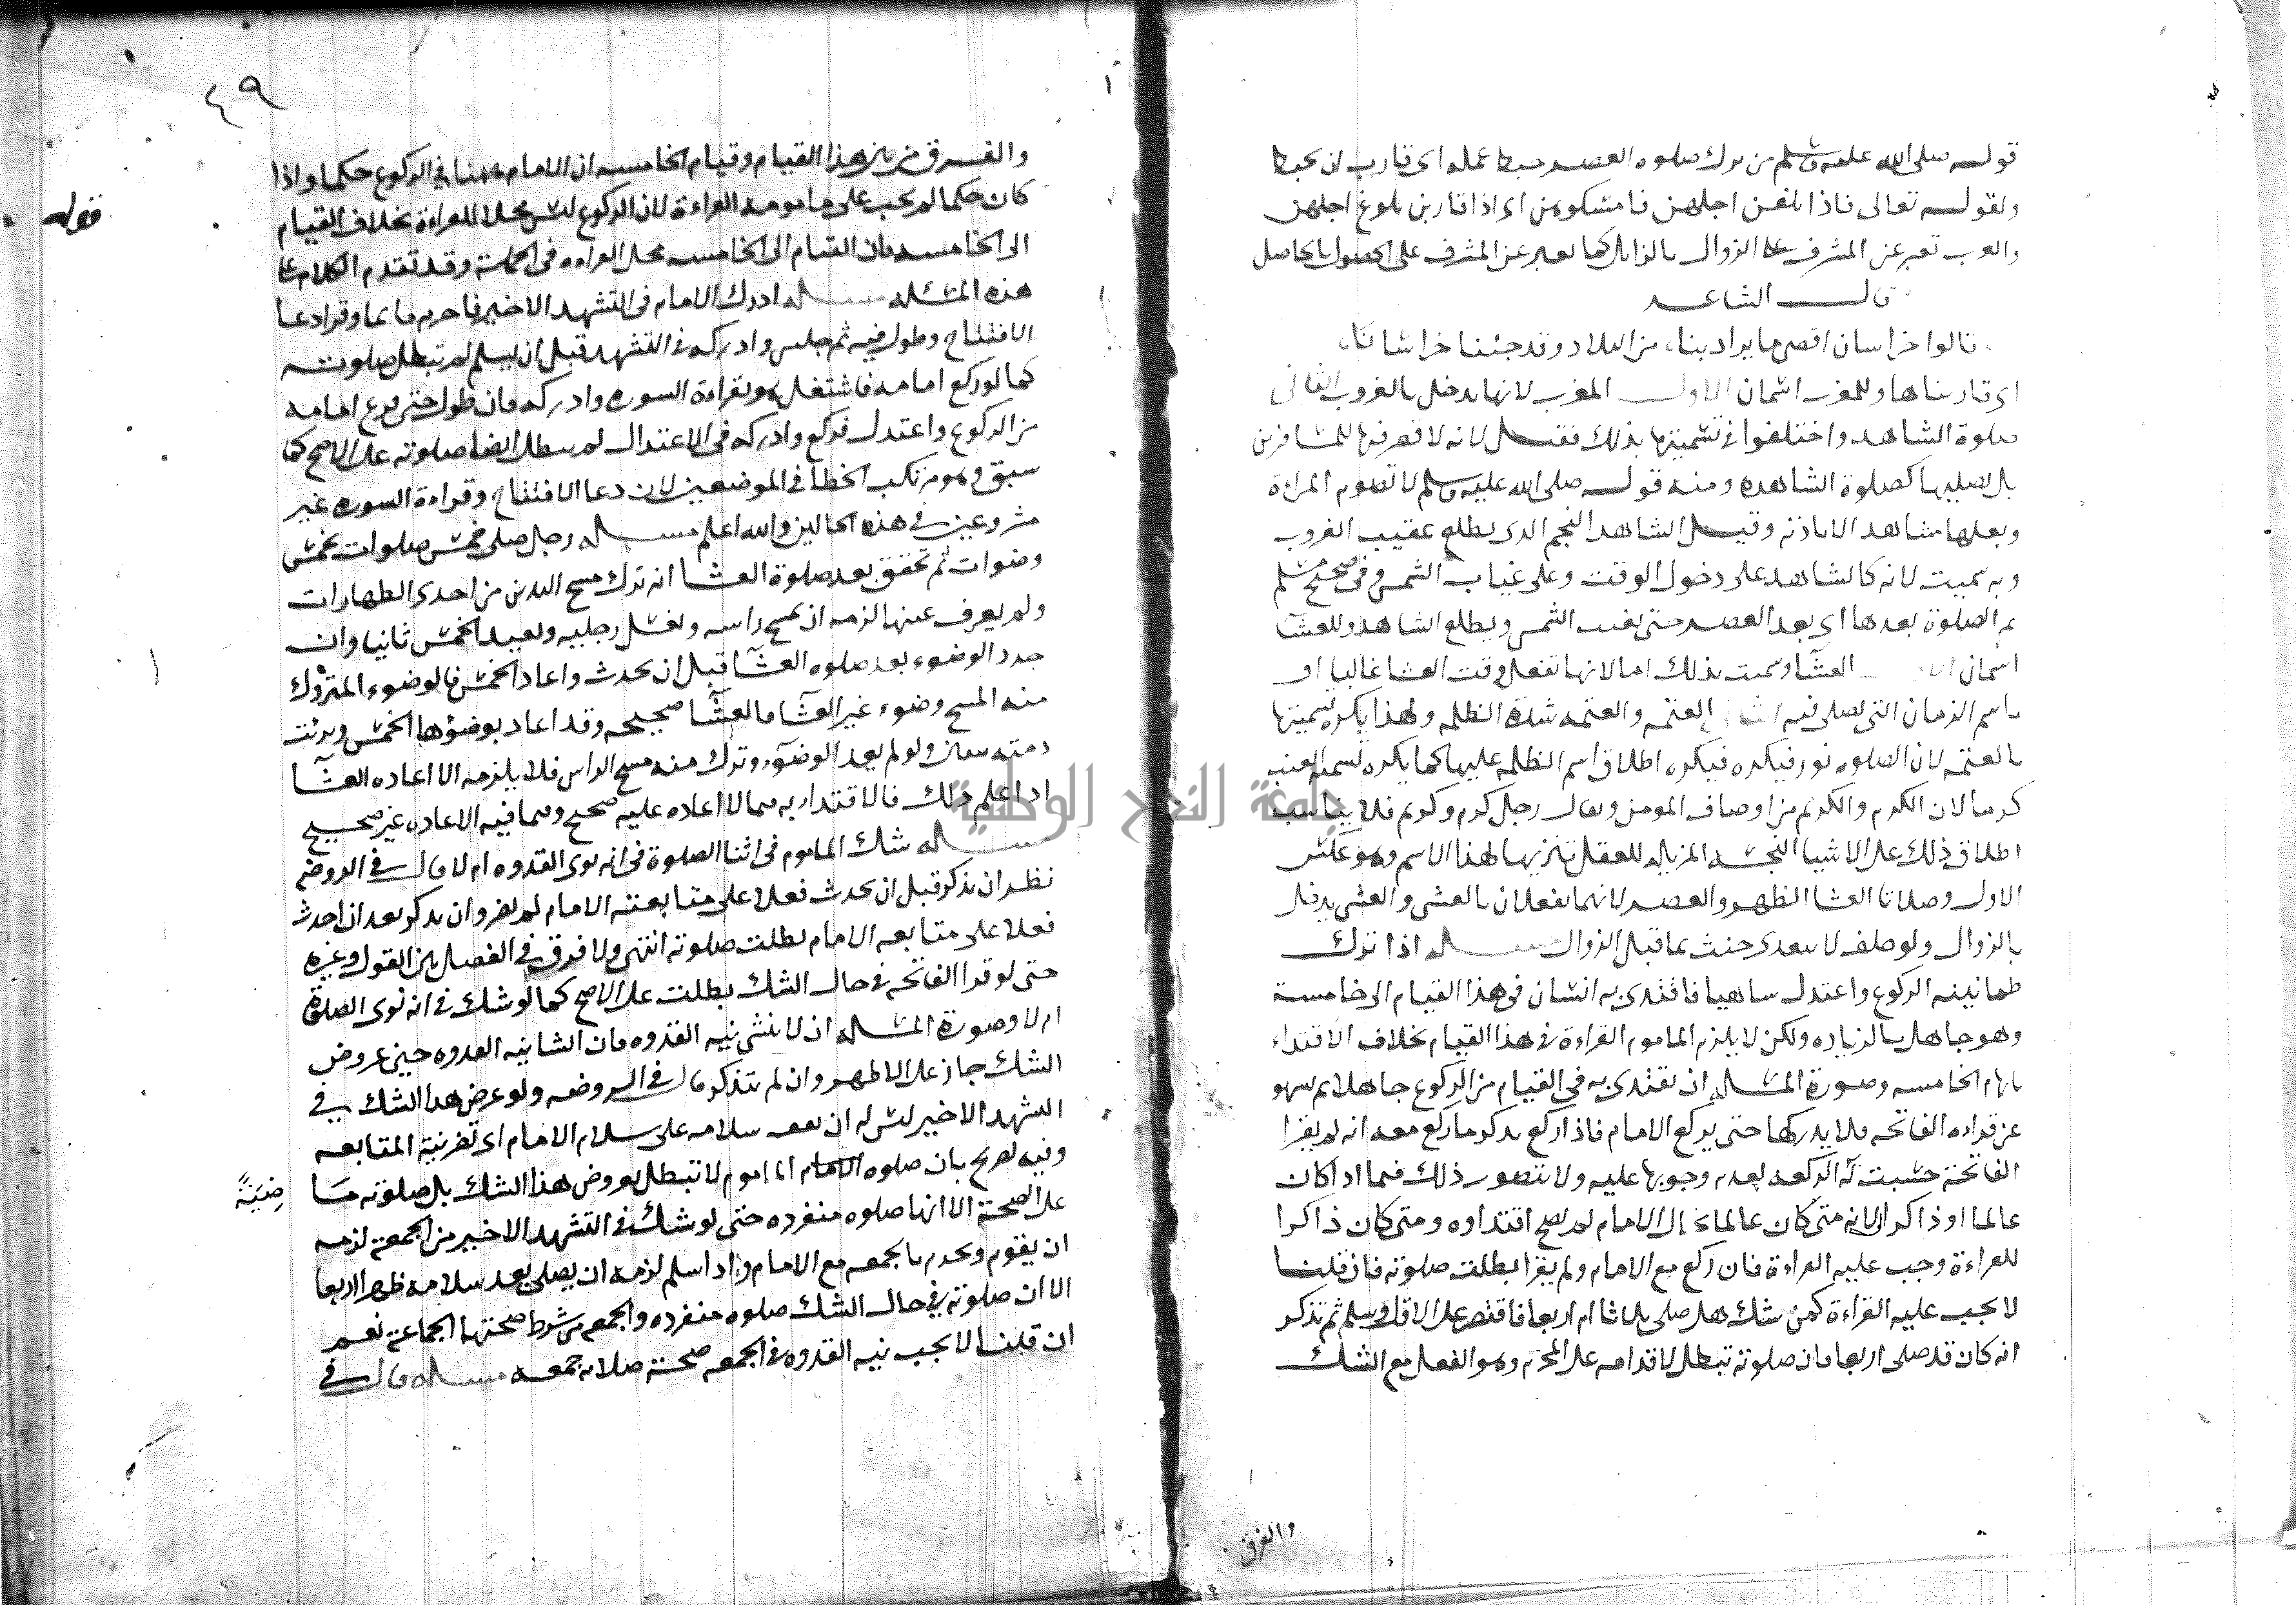 قوله صلى الله عليه وسلم من ترك صلوه العصر حبط عمله اى قارب ان يحبط
ولقوله تعالى فاذا بلغن اجلهن فامسكوهن اى اذا قاربن بلوغ اجلهن
والعرب تعبر عن المشرف على الزوال بالزايل كما تعبر عن المشرف على الحصول بالحاصل
قال الشاعر
قالوا خراسان اقصى ما يراد بنا من البلاد وقد جئنا خراسانا
اى قاربناها وللمغرب اسمان الاول المغرب لانها تدخل بالغروب الثانى
صلوة الشاهد واختلفوا فى تسميتها بذلك فقيل لانه لا قصر فيها للمسافرين
بل يصليها كصلوة الشاهد ومنه قوله صلى الله عليه وسلم لا تصوم المراة
وبعلها شاهد الا باذنه وقيل الشاهد النجم الذى يطلع عقيب الغروب
وبه سميت لانه كالشاهد على دخول الوقت وعلى غياب الشمس وفى صحيح مسلم
الصلوة بعدها اى بعد العصر حتى تغيب الشمس ويطلع الشاهد وللعشا
اسمان العشا وسميت بذلك اما لانها تفعل وقت العشا غالبا او
باسم الزمان التى تصلى فيه الثانى العتمه والعتمه شدة الظلمه ولهذا يكره تسميتها
بالعتمه لان الصلوه نور فيكره فيكره اطلاق اسم الظلمه عليها كما يكره تسميه العنب
كرما لان الكرم والكرم من اوصاف المومن ويقال رجل كرم وكرم فلا يناسب
اطلاق ذلك على الاشيا النجسه المزيله للعقل تنزيها لهذا الاسم وهو عكس
الاول وصلاتا العشا الظهر والعصر لانهما يفعلان بالعشى والعشى يدخل
بالزوال ولو حلف لا يتغدى حنث بما قبل الزوال مسله اذا ترك
طمانينه الركوع واعتدل ساهيا فاقتدى به انسان فى هذا القيام الى خامسة
وهو جاهل بالزياده ولكن لا يلزم الماموم القراءة فى هذا القيام بخلاف الاقتداء
الخامسه وصورة المسله ان يقتدى به فى القيام من الركوع جاهلا ثم يسهو
عن قراءه الفاتحه فلا يدركها حتى يركع الامام فاذا ركع تذكر ما ركع معه انه لم يقرا
الفاتحة حسبت له الركعه لعدم وجوبها عليه ولا يتصور ذلك فيما اذا كان
عالما او ذاكرا لانه متى كان عالما بحال الامام لم يصح اقتداوه ومتى كان ذاكرا
للقراءة وجب عليه القراءة فان ركع مع الامام ولم يقرا بطلت صلوته فان قلنا
لا يجب عليه القراءة كمن شك هل صلى ثلاثا ام اربعا فاقتصر على الاقل وسلم ثم تذكر
انه كان قد صلى اربعا فان صلوته تبطل لاقدامه على المحرم وهو الفعل مع الشك
والفرق
٤٩
والفرق بين هذا القيام وقيام الخامسه ان الامام ههنا فى الركوع حكما واذا
كان حكما لم يجب على مامومه القراءة لان الركوع ليس محلا للقراءة بخلاف القيام
الى الخامسه فان القيام الى الخامسه محل القراءه فى الجملة وقد تقدم الكلام على
هذه المسئله مسله ادرك الامام فى التشهد الاخير فاحرم قايما وقرا دعا
الافتتاح وطول فيه ثم جلس وادركه فى التشهد قبل ان يسلم لم تبطل صلوته
كما لو ركع امامه فاشتغل هو بقراءة السوره وادركه فان طول حتى فرغ امامه
من الركوع واعتدل فركع وادركه فى الاعتدال لم يبطل ايضا صلوته على الاصح كما
سبق وهو مرتكب الخطا فى الموضعين لان دعا الافتتاح وقراءة السوره غير
مشروعين فى هذه الحالين والله اعلم مسله رجل صلى خمس صلوات بخمس
وضوات ثم تحقق بعد صلوة العشا انه ترك مسح الراس من احدى الطهارات
ولم يعرف عينها لزمه ان يمسح راسه ويغسل رجليه ويعيد الخمس ثانيا وان
جدد الوضوء بعد صلوه العشا قبل ان يحدث واعاد الخمس فالوضوء المتروك
منه المسح وضوء غير العشا فالعشا صحيحه وقد اعاد بوضوها الخمس وبرئت
ذمته بيقين ولو لم يعد الوضوء وترك منه مسح الراس فلا يلزمه الا اعاده العشا
اذا علم ذلك فالاقتدا به فيما لا اعاده عليه صحيح وفيما فيه الاعاده غير صحيح
مسله شك الماموم فى اثنا الصلوة فى انه نوى القدوه ام لا قال فى الروضه
نظر ان تذكر قبل ان يحدث فعلا على متابعته الامام لم يضر وان تذكر بعد ان احدث
فعلا على متابعه الامام بطلت صلوته انتهى ولا فرق فى الفصل بين القول وغيره
حتى لو قرا الفاتحه فى حال الشك بطلت على الاصح كما لو شك فى انه نوى الصلوة
ام لا وصورة المسله ان لا ينشى نيه القدوه فان انشا نيه القدوه حين عروض
الشك جاز على الاظهر وان لم يتذكر قال فى الروضه ولو عرض هذا الشك فى
التشهد الاخير ليس له ان يقف سلامه على سلام الامام اى تفريقه المتابعه
وفيه تصريح بان صلوه الامام الماموم لا تبطل بعروض هذا الشك بل صلوته
على الصحة الا انها صلوه منفرده حتى لو شك فى التشهد الاخير من الجمعة لزمه
ان يقوم ويحرم بالجمعه مع الامام واذا سلم لزمه ان يصلى بعد سلامه ظهرا اربعا
الا ان صلوته فى حال الشك صلوه منفرده والجمعه من شرط صحتها الجماعة نعم
ان قلنا لا يجب نيه القدوه فى الجمعه صحت صلاته جمعه مسله قال فى
قوله
جامعة النجاح الوطنية